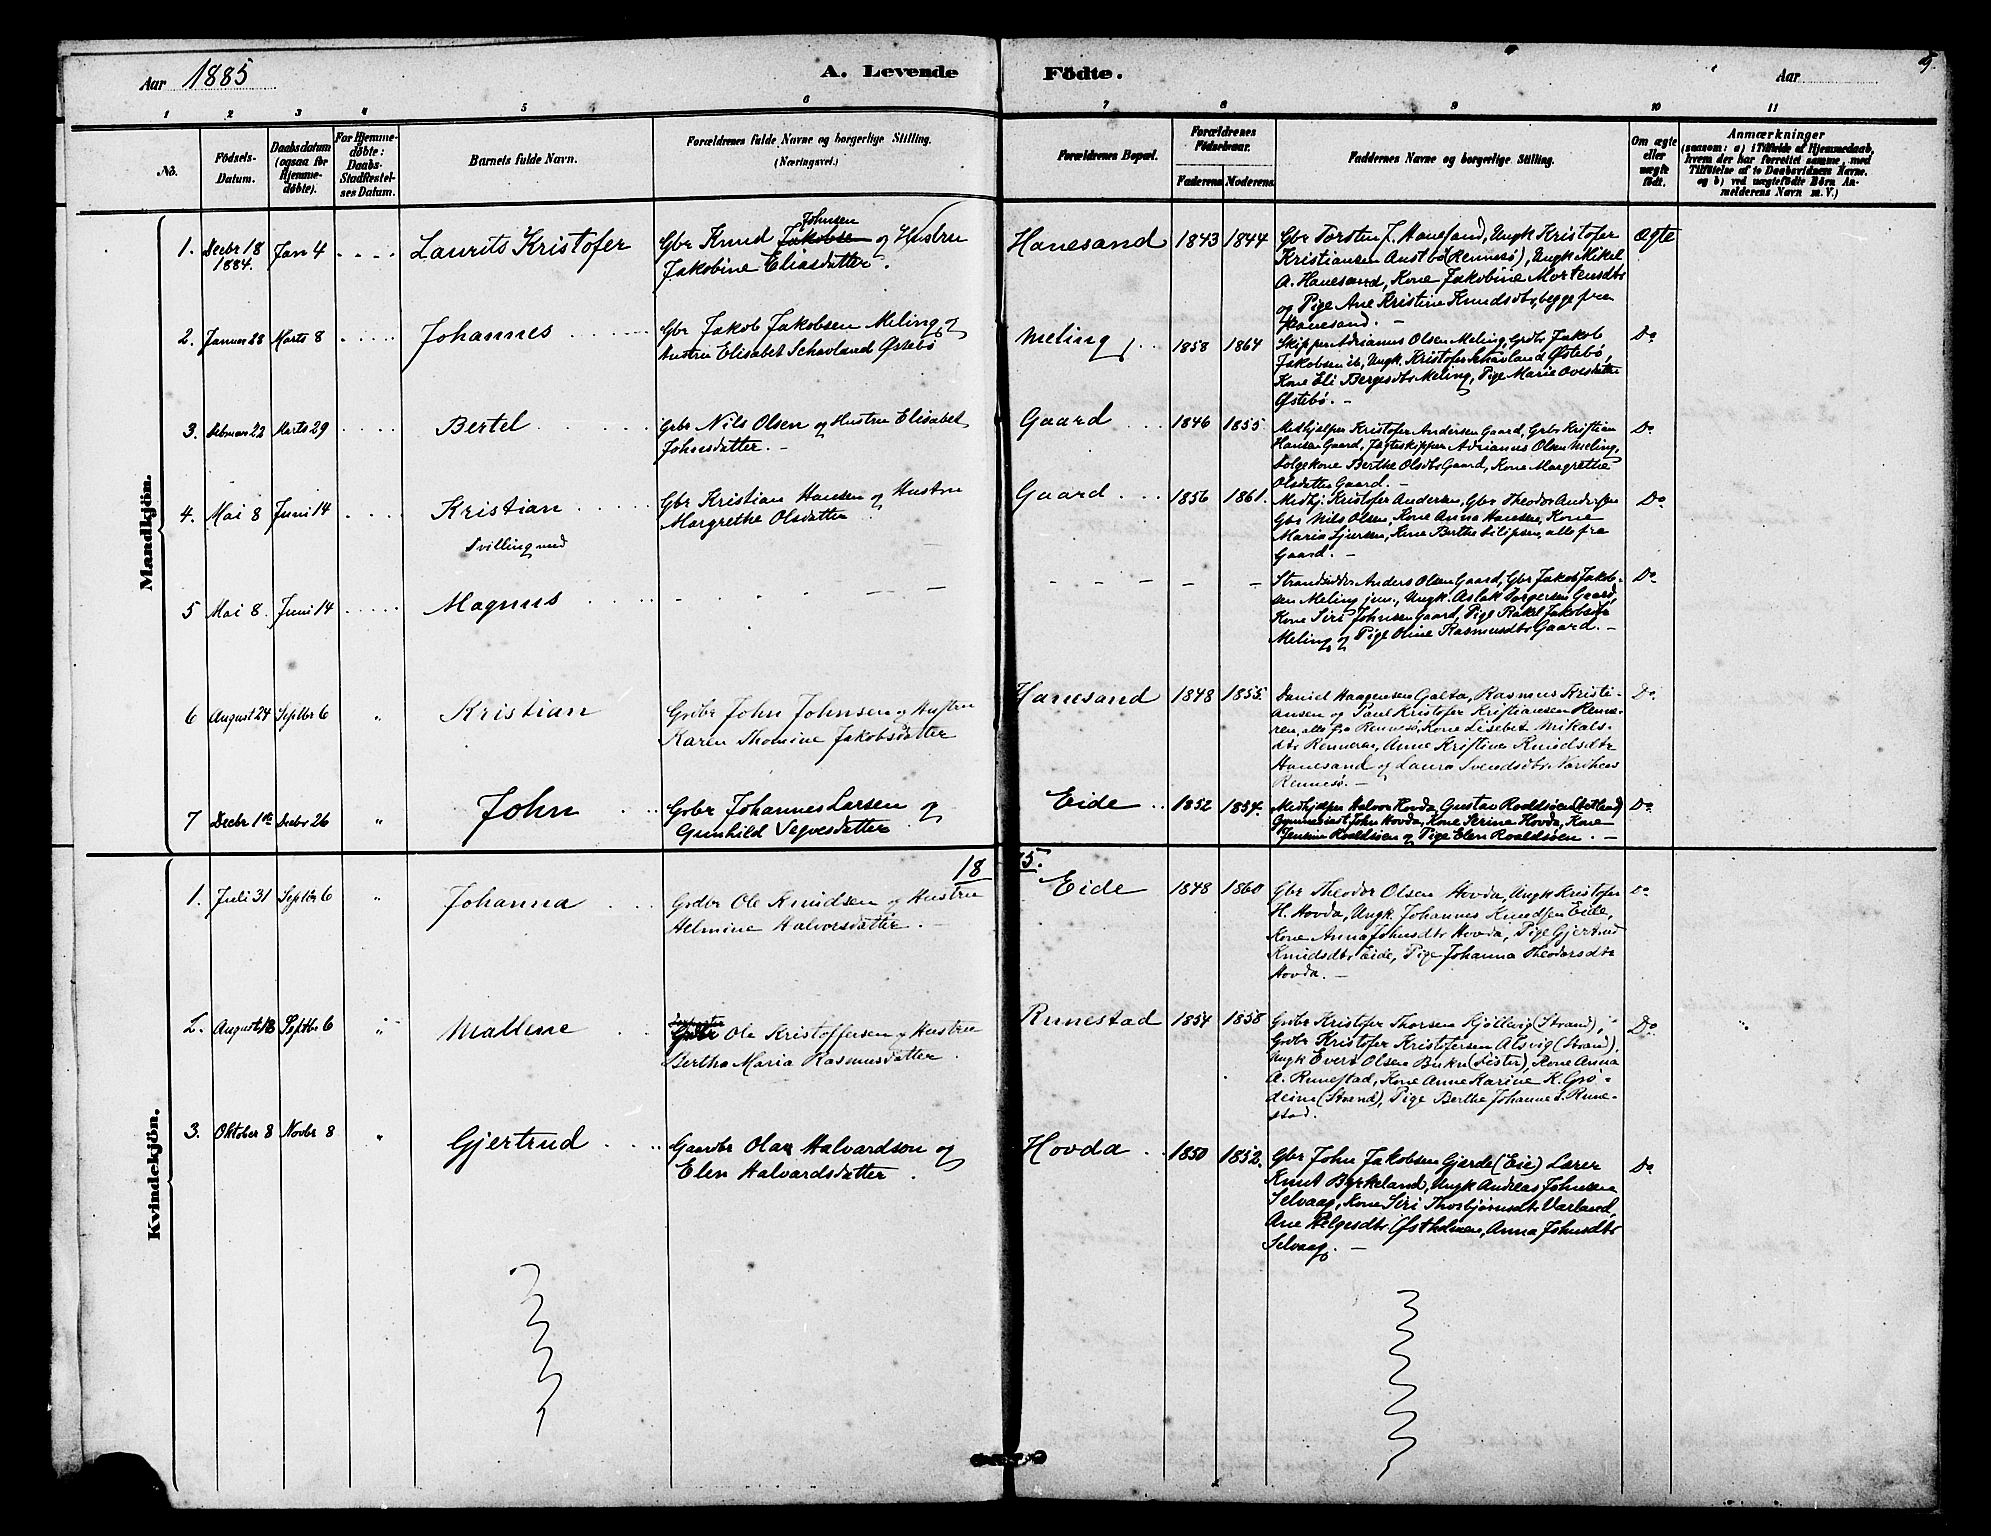 Aar 1885
A. Levende Födte.
Aar
5.
1 2 3 4 5 6 7 8 9 10 11
No.
Födsels-
Datum.
Daabsdatum
(ogsaa for
Hjemme-
døbte).
For Hjemme-
døbte:
Daabs-
Stadfæstel-
ses Datum.
Barnets fulde Navn.
Forældrenes fulde Navne og borgerlige Stilling.
(Næringsvei.)
Forældrenes Bopæl.
Forældrenes
Födselsaar.
Faderens Moderens
Faddernes Navne og borgerlige Stilling.
Om ægte
eller
uægte
födt.
Anmærkninger
(saasom: a) i Tilfælde af Hjemmedaab,
hvem der har forrettet samme, med
Tilföielse af to Daabsvidners Navne,
og b) ved uægtefödte Börn An-
melderens Navn m. V.)
Mandkjön.
1. Decbr 18 Jan 4 Laurits Kristofer
1884.
Johnsen
Gbr Knud Jakobsen og Hustru
Jakobine Eliasdatter.
Hanesand 1843 1844
Gbr Torsten J. Hanesand, Ungk Kristofer
Kristiansen Austbö (Rennesö), Ungk Mikel
A. Hanesand, Kone Jakobine Mortensdtr
og Pige Ane Kristine Knudsdtr, begge fra
Hanesand. –
Ægte
2. Januar 28 Marts 8 Johannes
Gbr Jakob Jakobsen Meling og
Hustru Elisabet Schavland Østebö
Meling 1858 1864
Skipper Adrianus Olsen Meling, Grdbr Jakob
Jakobsen ib, Ungk. Kristofer Schavland Østebö,
Kone Eli Bergesdtr Meling, Pige Marie Ovesdatter
Østebö. –
Do
3. Februar 22 Marts 29 Bertel
Grbr Nils Olsen og Hustru Elisabet
Johnsdatter. –
Gaard 1846 1855
Medhjælper Kristofer Andersen Gaard, Grbr Kristian
Hansen Gaard, Jagteskipper Adrianus Olsen Meling,
Folgekone Berthe Olsdtr Gaard, Kone Margrethe
Olsdatter Gaard. –
Do
4. Mai 8 Juni 14 Kristian
Tvilling med
Gbr Kristian Hansen og Hustru
Margrethe Olsdatter
Gaard 1856 1861.
Medhj. Kristofer Andersen, Gbr Theodor Andersen
Gbr Nils Olsen, Kone Anna Hansen, Kone
Maria Sjursen, Kone Berthe Filipsen, alle fra
Gaard. –
Do
5 Mai 8. Juni 14 Magnus
Strandsidder Anders Olsen Gaard, Gbr Jakob Jakob-
sen Meling jun., Ungk. Aslak Torgersen Gaard,
Kone Siri Johnsen Gaard, Pige Rakel Jakobsdtr
Meling og Pige Oline Rasmusdtr Gaard. –
Do
6 August 24 Septbr 6 " Kristian
Grdbr John Johnsen og Hustru
Karen Thomine Jakobsdatter
Hanesand 1848 1855.
Daniel Haagensen Galta, Rasmus Kristi-
ansen og Paul Kristofer Kristiansen Renne-
ren, alle fra Rennesö, Kone Lisebet Mikals-
dtr Renneren, Anne Kristine Knudsdtr
Hanesand og Laura Svendsdtr
Rennesö. –
Do
7 Decbr 1ste Decbr 26 " John
Grbr Johannes Larsen og
Gunhild Vegvesdatter
Eide 1852 1854.
Medhjælper Halvor Hovda, Gustav Roaldsöen
Gymnasiast John Hovda, Kone Serine Hovda, Kone
Roaldsöen og Pige Elen Roaldsöen. –
Do
Kvindekjön.
1885.
1. Juli 31 Septbr 6 " Johanna
Grdbr Ole Knudsen og Hustru
Helmine Halvorsdatter. –
Eide 1848 1860
Gbr Theodor Olsen Hovda, Ungk Kristofer
H. Hovda, Ungk. Johannes Knudsen Eide,
Kone Anna Johnsdtr Hovda, Pige Gjertrud
Knudsdtr Eide, Pige Johanna Theodorsdtr
Hovda. –
Do
2. August 18 Septbr 6 " Mallene
Ole Kristoffersen og Hustru
Bertha Maria Rasmusdatter.
Runestad 1854 1858
Grdbr Kristofer Thorsen Kjölevig (Strand),
Grdbr Kristofer Kristofersen Alsvig (Strand),
Ungk Evert Olsen Bukn (Lister), Kone Anna
A. Runestad, Kone Anne Karine K. Grö-
deim (Strand), Pige Berthe Johanne S. Rune-
stad.
Do
3. Oktober 8 Novbr 8 " Gjertrud
Gaardbr Olar Halvardson og
Elen Halvardsdatter.
Hovda 1850 1852.
Gbr John Jakobsen Gjerde (Eie) Lærer
Knut Byrkeland, Ungk Andreas Johnsen
Selvaag, Kone Siri Thorbjörnsdtr Varland,
Ane Helgesdtr Østholmen, Anna Johnsdtr
Selvaag. –
Do